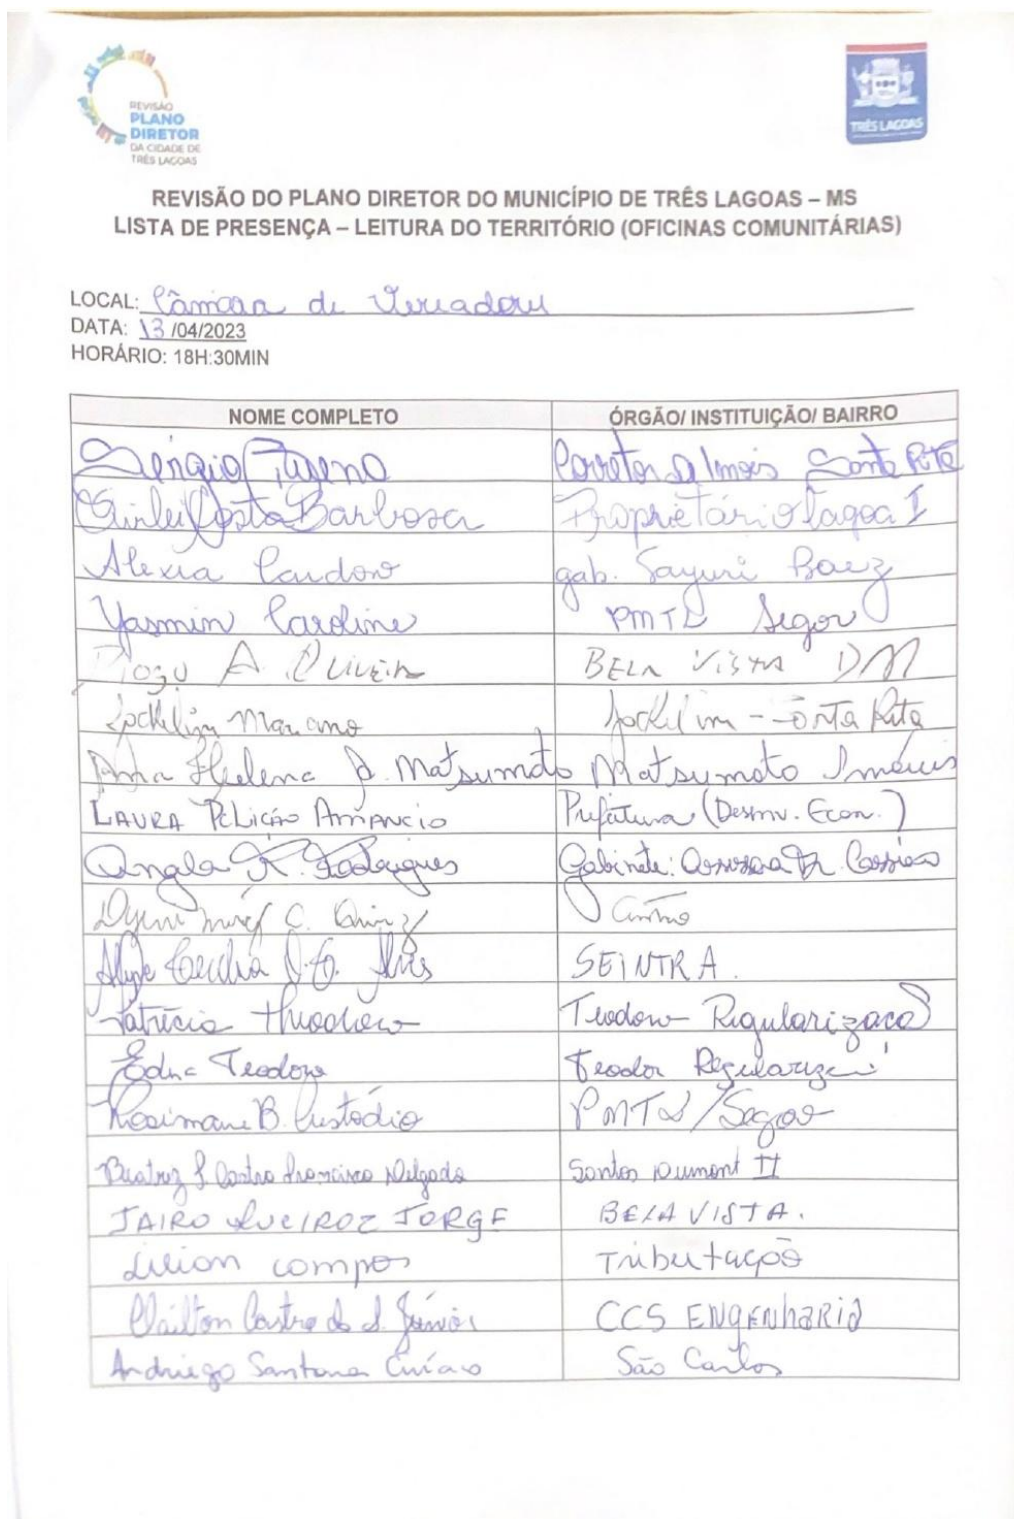 REVISÃO
PLANO
DIRETOR
DA CIDADE DE
TRÊS LAGOAS
TRÊS LAGOAS
REVISÃO DO PLANO DIRETOR DO MUNICÍPIO DE TRÊS LAGOAS – MS
LISTA DE PRESENÇA – LEITURA DO TERRITÓRIO (OFICINAS COMUNITÁRIAS)
LOCAL: Câmara de Vereadores
DATA: 13/04/2023
HORÁRIO: 18H:30MIN
NOME COMPLETO ÓRGÃO/ INSTITUIÇÃO/ BAIRRO
Sérgio Corretor D Santa Rita
Costa Barbosa Proprietário lagoa I
Alexia Cardoso gab. Sayuri Baez
Yasmin Caroline PMTL Segov
A. Oliveira BELA VISTA DM
Jockelim Mariano Jockelim - Rita
Ana Helena J. Matsumoto Matsumoto Imóveis
LAURA PELIÇÃO AMANCIO Prefeitura (Desenv. Econ.)
Angela R. Rodrigues Gabinete:
C. Centro
Cecilia SEINTRA.
Patrícia Theodoro Teodoro Regularização
Edna Teodoro Teodor
Rosimare B. Custódio PMTL/Segov
Beatriz S. Castro Francisco Delgado Santos Dumont II
JAIRO QUEIROZ JORGE BELA VISTA.
Lilian Campos Tributação
Cleilton Castro de S. Júnior CCS ENgENhARiA
Andriego Santana São Carlos